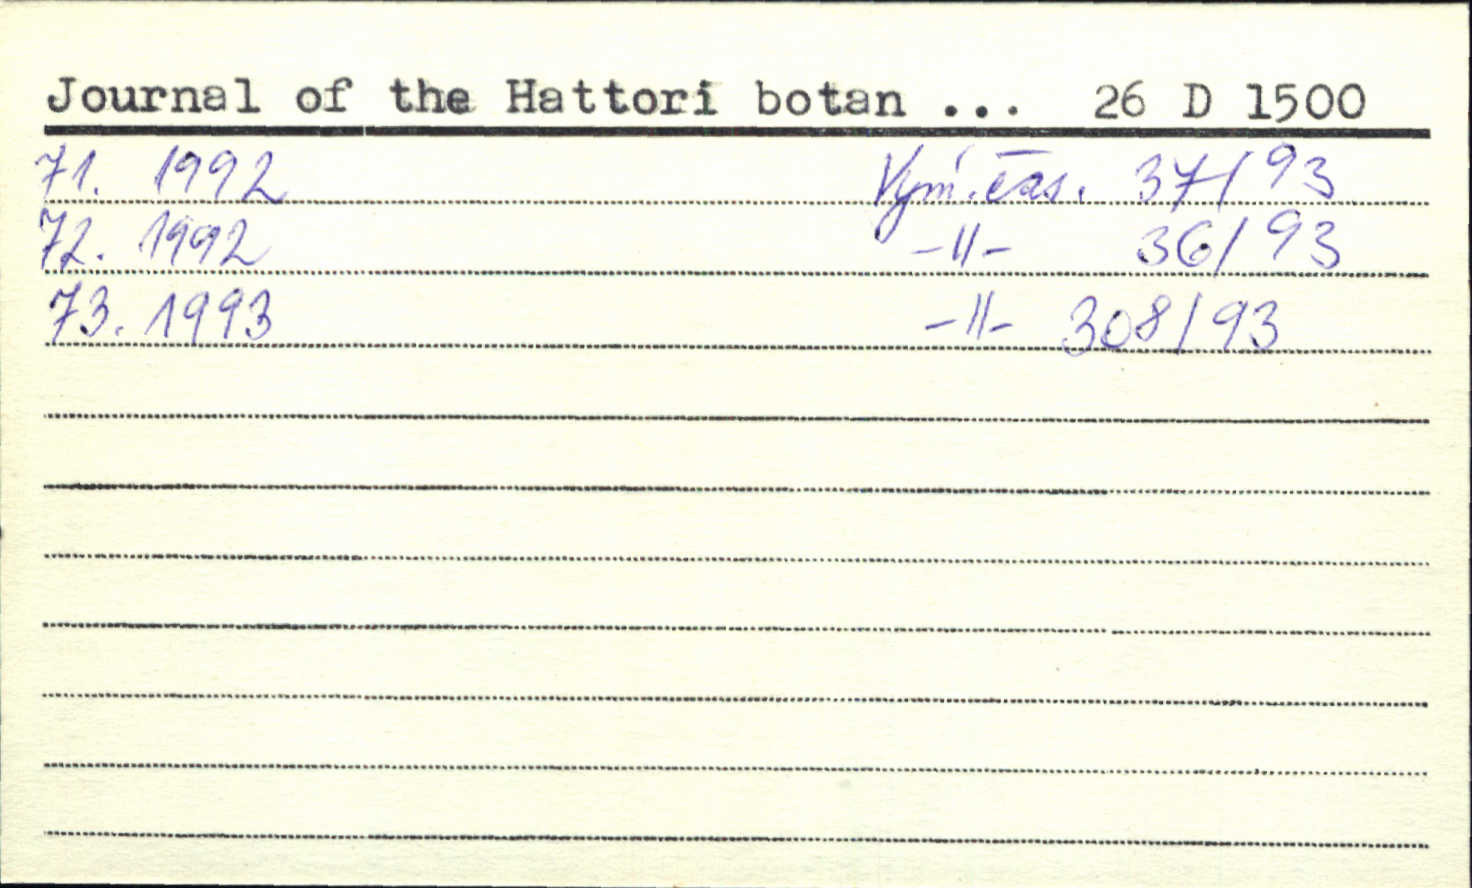 Journal of the Hattori botan ... 26 D 1500
71. 1992 Vým. čas. 37/93
72. 1992 -II- 36/93
73. 1993 -II- 308/93